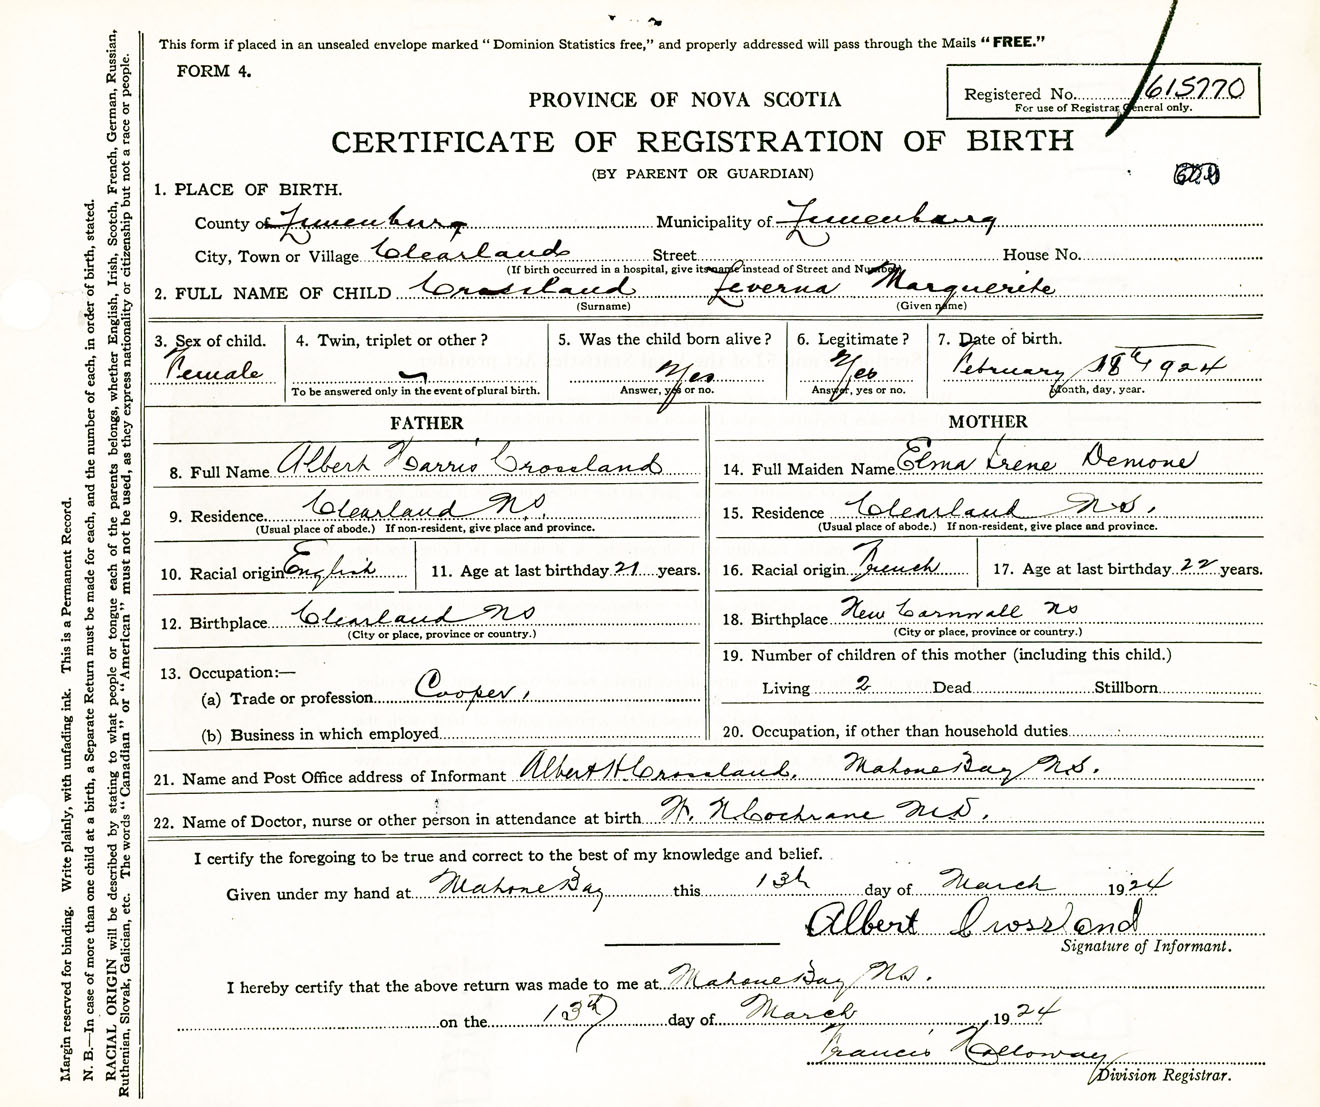 This form if placed in an unsealed envelope marked "Dominion Statistics free," and properly addressed will pass through the Mails "FREE."
FORM 4.
Registered No. 615770
For use of Registrar General only.
PROVINCE OF NOVA SCOTIA
CERTIFICATE OF REGISTRATION OF BIRTH
(BY PARENT OR GUARDIAN)
1. PLACE OF BIRTH.
County of Lunenburg Municipality of Lunenburg
City, Town or Village Clearland Street House No.
(If birth occurred in a hospital, give its name instead of Street and Number)
2. FULL NAME OF CHILD Crossland Leverna Marguerite
(Surname) (Given name)
3. Sex of child. 4. Twin, triplet or other? 5. Was the child born alive? 6. Legitimate? 7. Date of birth.
Female Yes Yes February 18th 1924
To be answered only in the event of plural birth. Answer, yes or no. Answer, yes or no. Month, day, year.
FATHER
8. Full Name Albert Harris Crossland
9. Residence Clearland NS
(Usual place of abode.) If non-resident, give place and province.
10. Racial origin English 11. Age at last birthday 21 years.
12. Birthplace Clearland NS
(City or place, province or country.)
13. Occupation:—
(a) Trade or profession Cooper,
(b) Business in which employed
MOTHER
14. Full Maiden Name Elma Irene Demone
15. Residence Clearland N.S.
(Usual place of abode.) If non-resident, give place and province.
16. Racial origin French 17. Age at last birthday 22 years.
18. Birthplace New Cornwall NS
(City or place, province or country.)
19. Number of children of this mother (including this child.)
Living 2 Dead Stillborn
20. Occupation, if other than household duties
21. Name and Post Office address of Informant Albert H Crossland, Mahone Bay N.S.
22. Name of Doctor, nurse or other person in attendance at birth W. N Cochrane M.D.
I certify the foregoing to be true and correct to the best of my knowledge and belief.
Given under my hand at Mahone Bay this 13th day of March 1924
Albert Crossland
Signature of Informant.
I hereby certify that the above return was made to me at Mahone Bay N.S.
on the 13th day of March 1924
Francis Holloway
Division Registrar.
Margin reserved for binding. Write plainly, with unfading ink. This is a Permanent Record.
N. B.—In case of more than one child at a birth, a Separate Return must be made for each, and the number of each, in order of birth, stated.
RACIAL ORIGIN will be described by stating to what people or tongue each of the parents belongs, whether English, Irish, Scotch, French, German, Russian,
Ruthenian, Slovak, Galician, etc. The words "Canadian" or "American" must not be used, as they express nationality or citizenship but not a race or people.